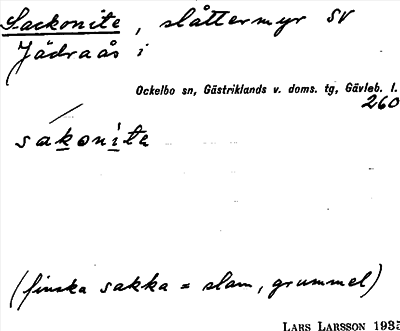 Sackonite, slåttermyr SV
Jädraås i
Ockelbo sn, Gästriklands v. doms. tg, Gävleb. l.
260
sakonite
(finska sakka = slam, grummel)
LARS LARSSON 1935